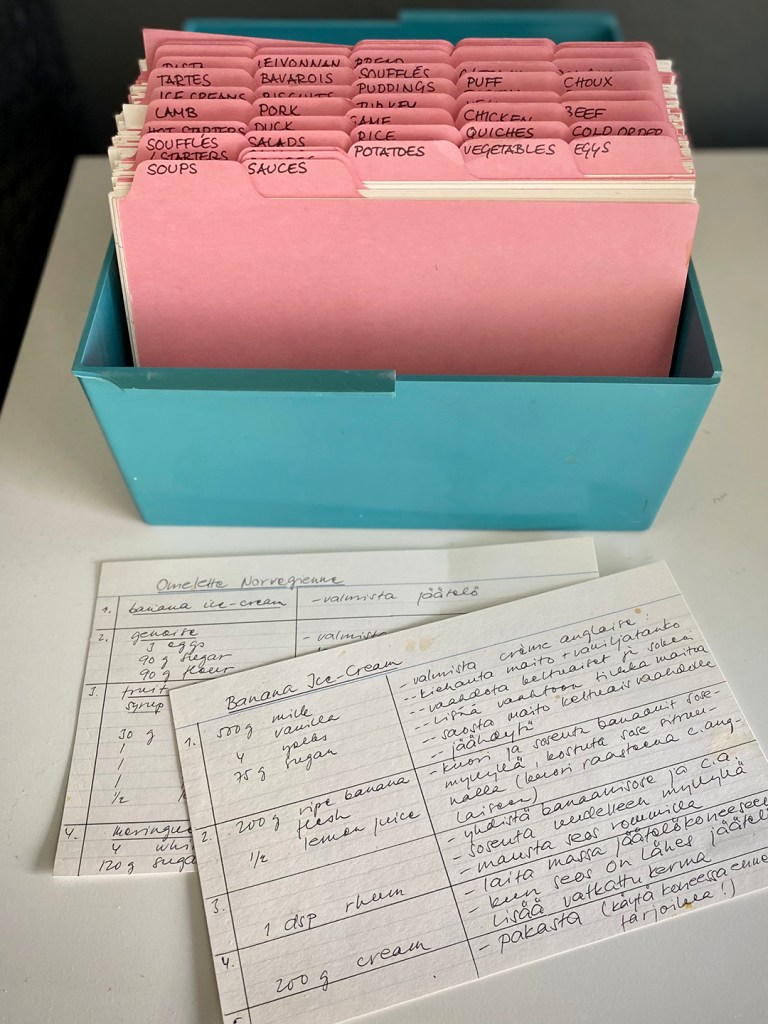 LEIVONNAN BREAD
TARTES BAVAROIS SOUFFLÉS PUFF CHOUX
ICE CREAMS BISCUITS PUDDINGS
LAMB PORK TURKEY CHICKEN BEEF
HOT STARTERS DUCK GAME QUICHES COLD
SOUFFLÉS SALADS RICE
STARTERS POTATOES VEGETABLES EGGS
SOUPS SAUCES
Omelette Norvegienne
1. banana ice-cream - valmista jäätelö
2. genoise
3 eggs
90 g sugar
90 g flour
3. fruit
syrup
30 g
1
1
1
1/2
4. meringue
4
120 g suga
Banana Ice-Cream
1. 500 g milk
vanilla
4 yolks
75 g sugar
- valmista crème anglaise:
- kiehauta maito + vaniljatanko
- vaahdota keltuaiset ja sokeri
- lisää vaahtoon tilkka maitoa
- saosta maito keltuaisvaahdolla
- jäähdytä
2. 200 g ripe banana
flesh
1/2 lemon juice
- kuori ja soseuta banaanit sose-
myllyllä, kostuta sose sitruu-
nalla (kuori raasteena c. ang-
laiseen)
- yhdistä banaanisose ja c.a.
soseuta uudelleen myllyllä
3. 1 dsp rhum
- mausta seos rommilla
- laita massa jäätelökoneeseen
4. 200 g cream
- kun seos on lähes jäätel
lisää vatkattu kerma
- pakasta (käytä koneessa enne
tarjoilua!)
5